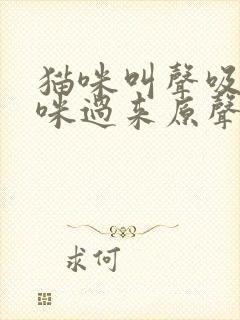 猫咪叫聲吸
咪過来原聲
求何